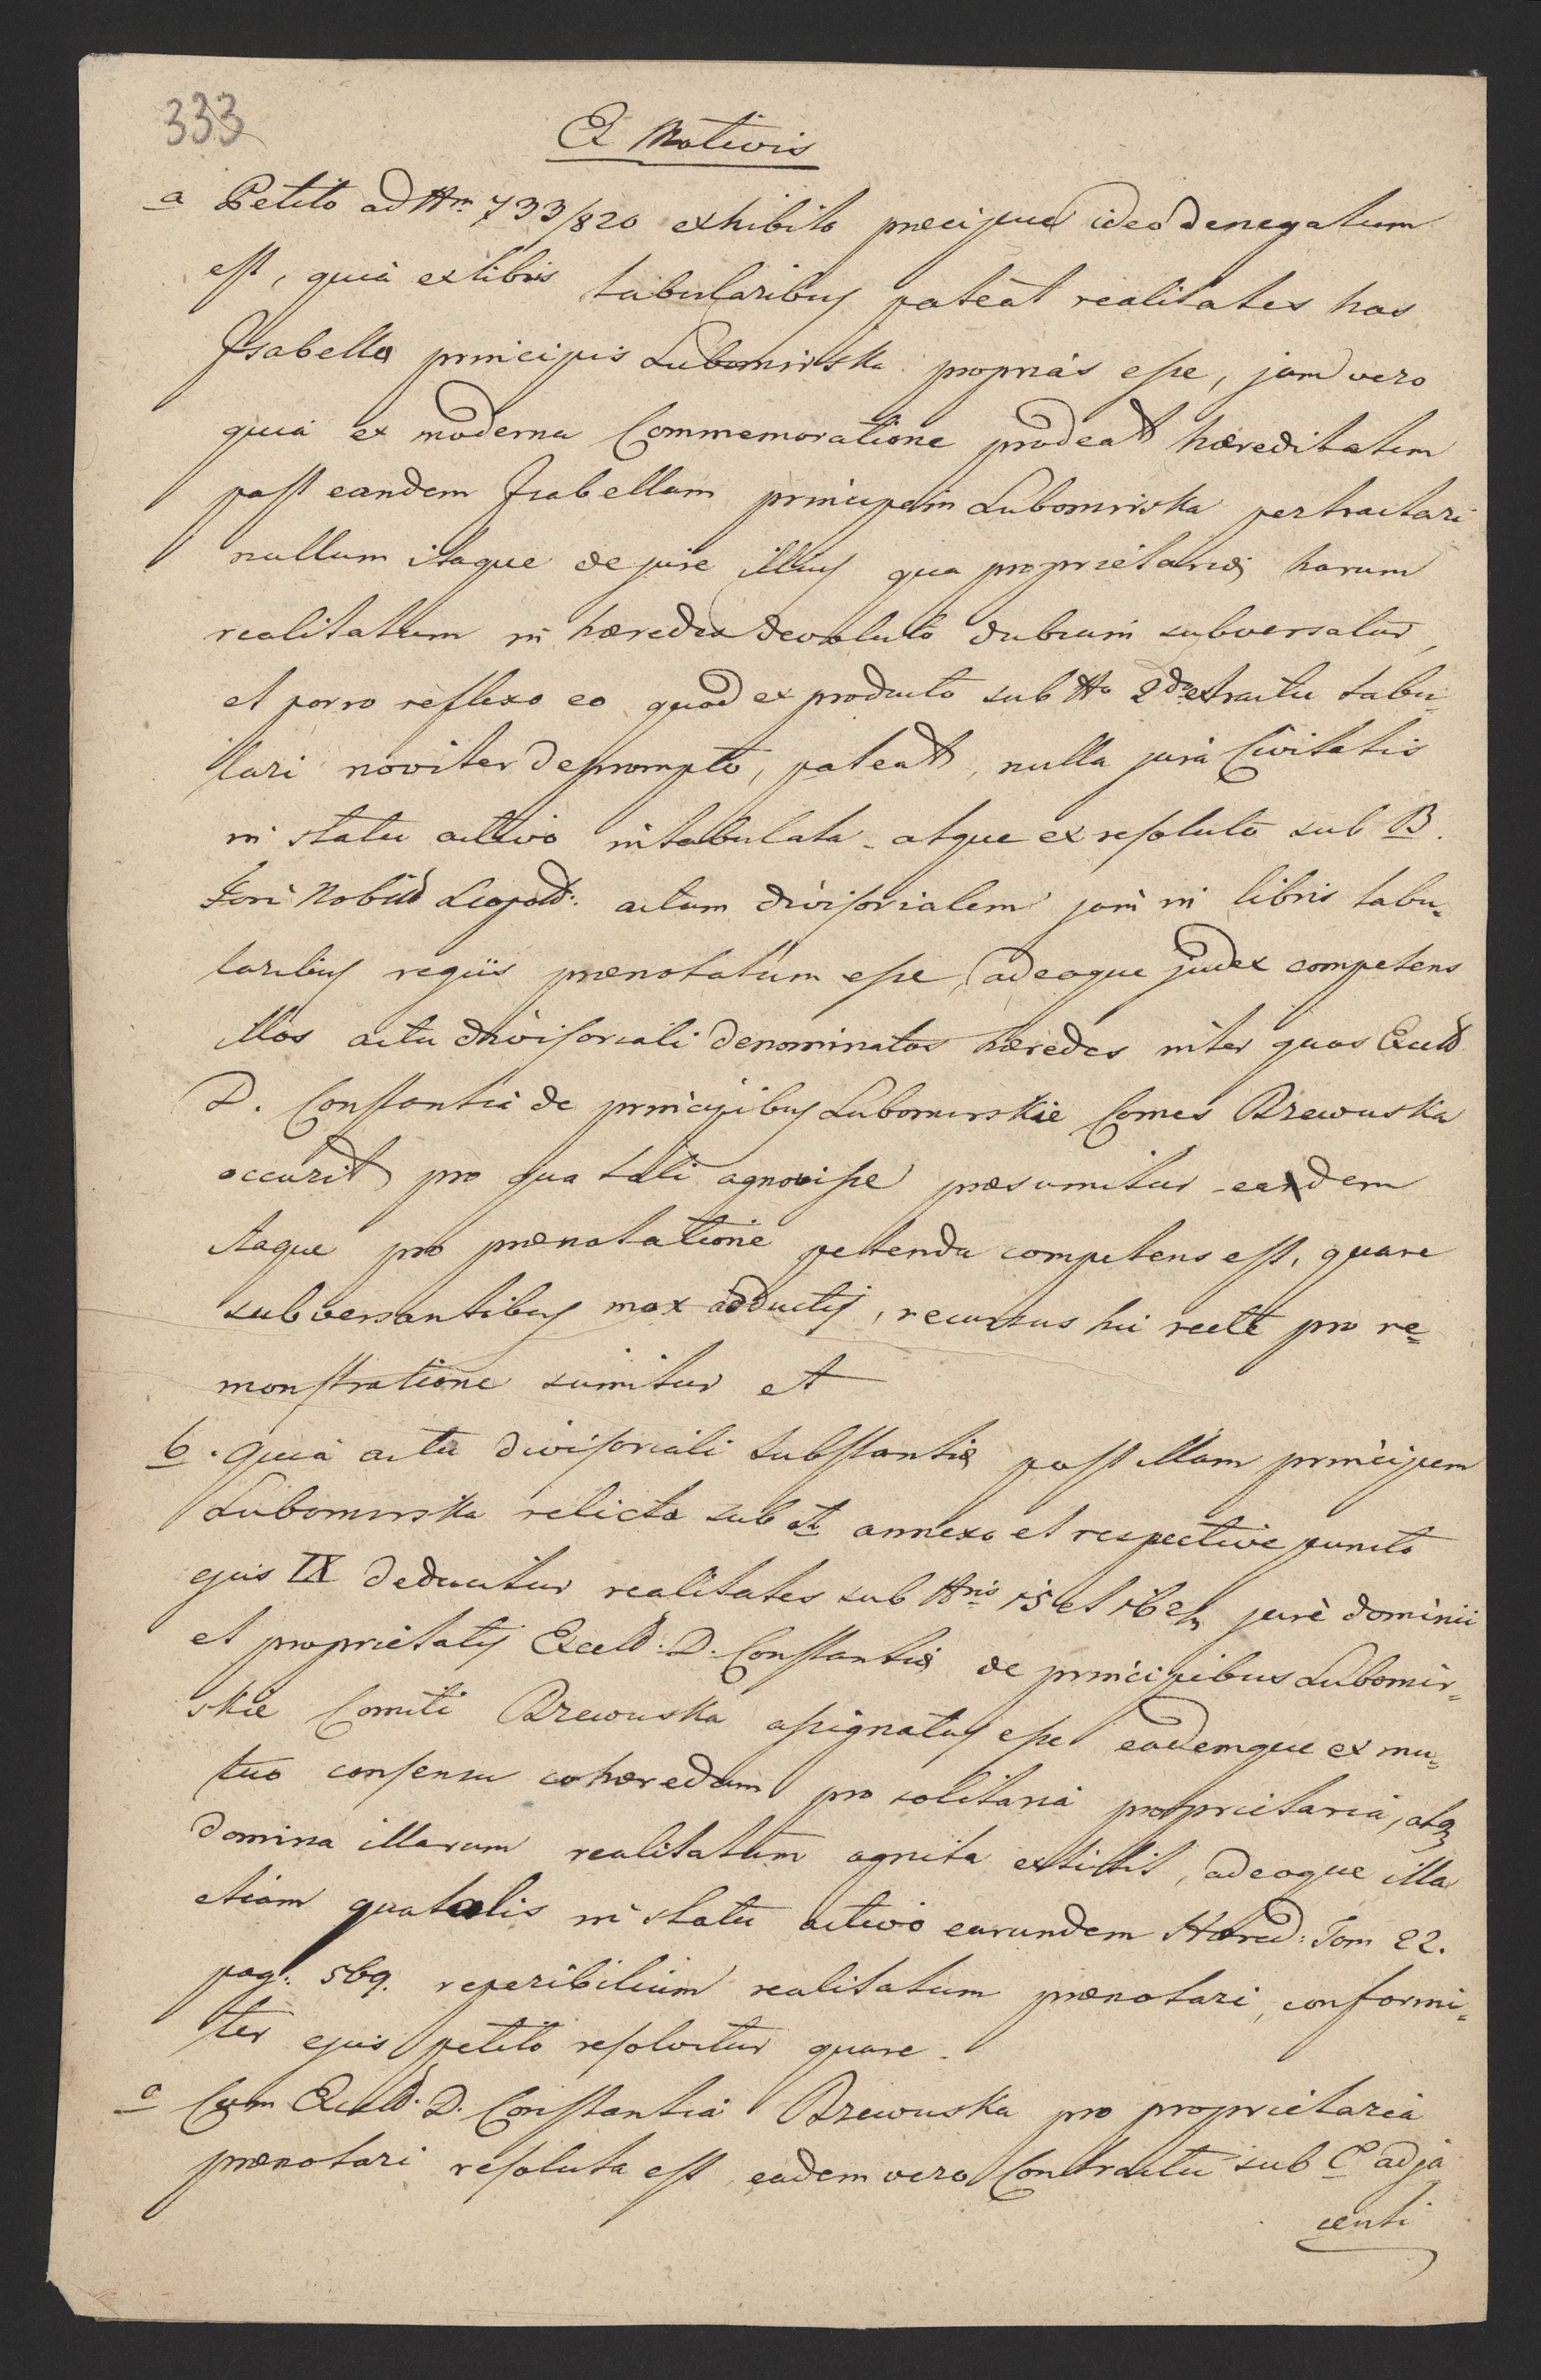 333
Ex Motivis
a Petito ad Nrm 733/820 exhibito præcipue ideo denegatum
est, quia ex libris tabularibus pateat realitates has
Isabellæ principis Lubomirska proprias esse, jam vero
quia ex moderna Commemoratione prodeat hæreditatem
post eandem Isabellam principem Lubomirska pertractari
nullum itaque de jure illius qua proprietariæ harum
realitatum in hæredes devoluto dubium subversatur,
et porro reflexo eo quod ex producto sub Nro 2do extractu tabu=
lari noviter deprompto, pateat, nulla jura Civitatis
in statu activo intabulata - atque ex resoluto sub B.
Fori Nobil Leopold: actum divisorialem jam in libris tabu=
laribus regiis prænotatum esse, adeoque judex competens
illos actu divisoriali denominatos hæredes inter quos Excell
D. Constantia de principibus Lubomirskie Comes Rzewuska
occurit pro qua tali agnovisse præsumitur eandem
itaque pro prænotatione petenda competens est, quare
subversantibus mox adductis, recursus hic recte pro re=
monstratione sumitur et
b. quia actu divisoriali substantiæ post illam principem
Lubomirska relictæ sub A annexo et respective puncto
ejus IX deducitur realitates sub Nris 15 et 162/4 jure dominii
et proprietatis Excell. D. Constantiæ de principibus Lubomir=
skie Comiti Rzewuska assignatas esse eademque ex mu=
tuo consensu cohæredum pro solitaria proprietaria, atq
domina illarum realitatum agnita extitit, adeoque illa
etiam qua talis in statu activo earundem Hæred: Tom 22.
pag: 569. reperibilium realitatum prænotari, conformi=
ter ejus petito resolvitur quare.
c Cum Excell. D. Constantia Rzewuska pro proprietaria
prænotari resoluta est eadem vero Contractu sub C adja
centi